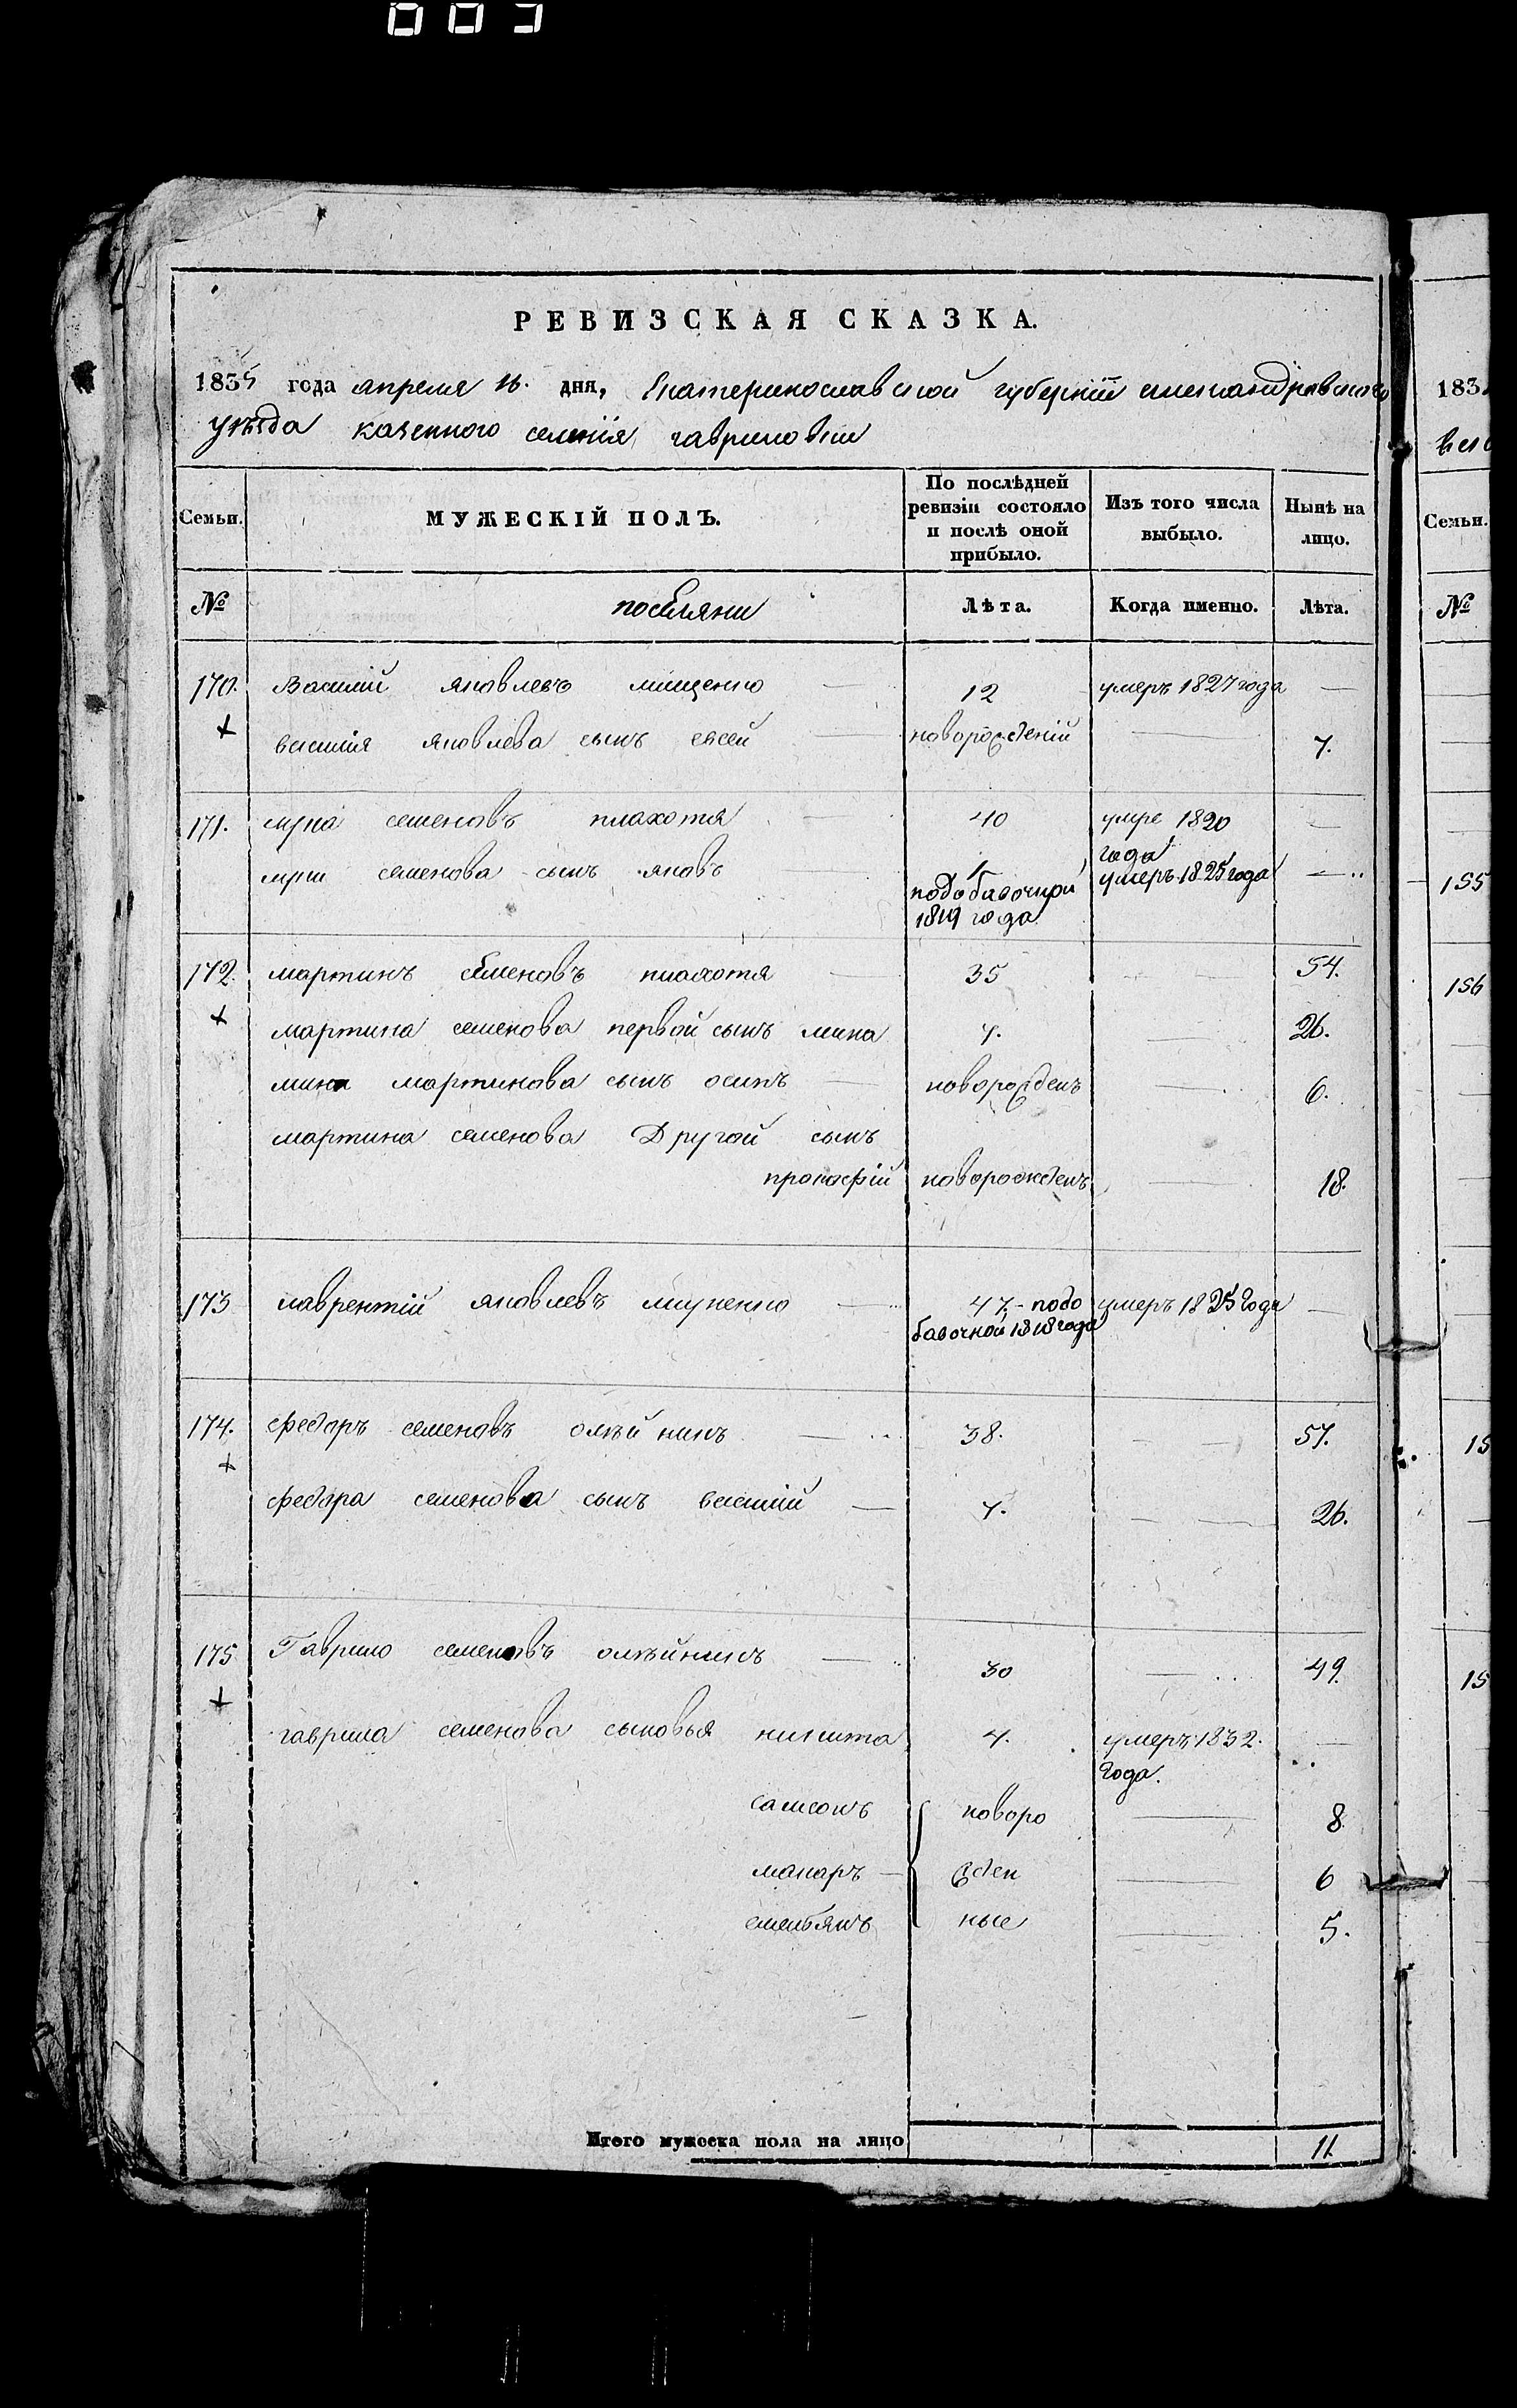 003
РЕВИЗСКАЯ СКАЗКА.
1835 года апреля 16. дня, Екатеринославской губерніи александровского
уѣзда казенного селенія гавриловки
Семьи. МУЖЕСКІЙ ПОЛЪ. По послѣдней ревизіи состояло и послѣ оной прибыло. Изъ того числа выбыло. Нынѣ на лицо.
№ поселяни Лѣта. Когда именно. Лѣта.
170. Василій яковлевъ мищенко — 12 умеръ 1827 года —
василія яковлева сынъ евсей — новорожденій — 7.
171. лука семеновъ плахотя — 40 умре 1820 года —
луки семенова сынъ яковъ 1 подобавочной 1819 года умеръ 1825 года —
172. мартинъ семеновъ плахотя — 35 — 54.
мартина семенова первой сынъ мина 7. — 26.
мина мартинова сынъ осипъ — новорожденъ — 6.
мартина семенова Другой сынъ
прокофій новорожденъ — 18.
173 лаврентій яковлевъ — 47 - подо умеръ 1825 года —
бавочной 1818 года
174. федоръ семеновъ олѣйникъ — 38. — 57.
федора семенова сынъ василій — 7. — 26.
175 Гаврило семеновъ олѣйникъ — 30 — 49.
гаврила семенова сыновья никита 4. умеръ 1832. —
года.
самсонъ новоро — 8
макаръ — жден — 6
емельянъ ные — 5.
Итого мужеска пола на лицо 11.
183
Семьи.
№
155
156
15
15